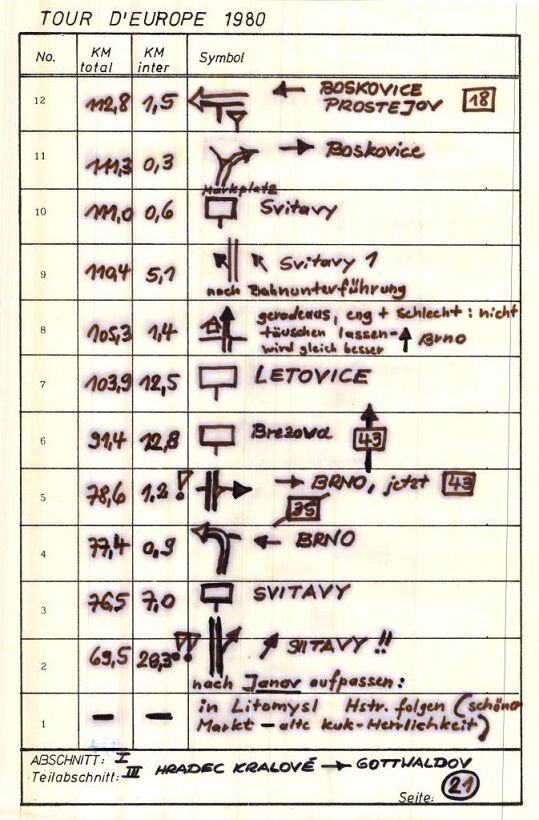 TOUR D'EUROPE 1980
No. KM total KM inter Symbol
12 112,8 1,5 BOSKOVICE
PROSTEJOV 18
11 111,3 0,3 Boskovice
Marktplatz
10 111,0 0,6 Svitavy
9 110,4 5,1 Svitavy 1
nach Bahnunterführung
8 105,3 1,4 geradeaus, eng + schlecht: nicht
täuschen lassen-
wird gleich besser Brno
7 103,9 12,5 LETOVICE
6 91,4 12,8 Brezova 43
5 78,6 1,2 ! BRNO, jetzt 43
35
4 77,4 0,9 BRNO
3 76,5 7,0 SVITAVY
2 69,5 28,3 !! SITAVY !!
nach Janov aufpassen:
1 — — in Litomysl Hstr. folgen (schöner
Markt - alte kuk-Herrlichkeit)
ABSCHNITT: I
Teilabschnitt: III HRADEC KRALOVÉ → GOTTWALDOV
Seite: 21